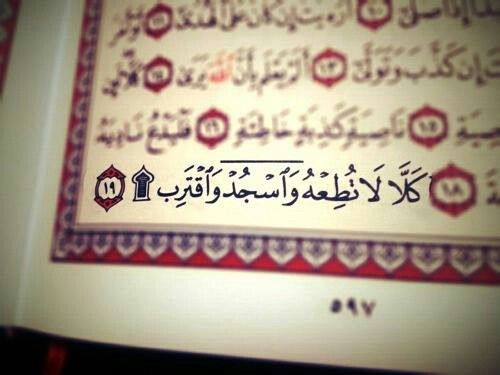 عَلَىٰٓ ١٠ أَرَءَيۡتَ إِن كَانَ عَلَى ٱلۡهُدَىٰٓ ١١
إِن كَذَّبَ وَتَوَلَّىٰٓ ١٣ أَلَمۡ يَعۡلَم بِأَنَّ ٱللَّهَ يَرَىٰ ١٤ كَلَّا لَئِن
١٥ نَاصِيَةٖ كَٰذِبَةٍ خَاطِئَةٖ ١٦ فَلۡيَدۡعُ نَادِيَهُۥ
١٨ كَلَّا لَا تُطِعۡهُ وَٱسۡجُدۡۤ وَٱقۡتَرِب ۩ ١٩
٥٩٧